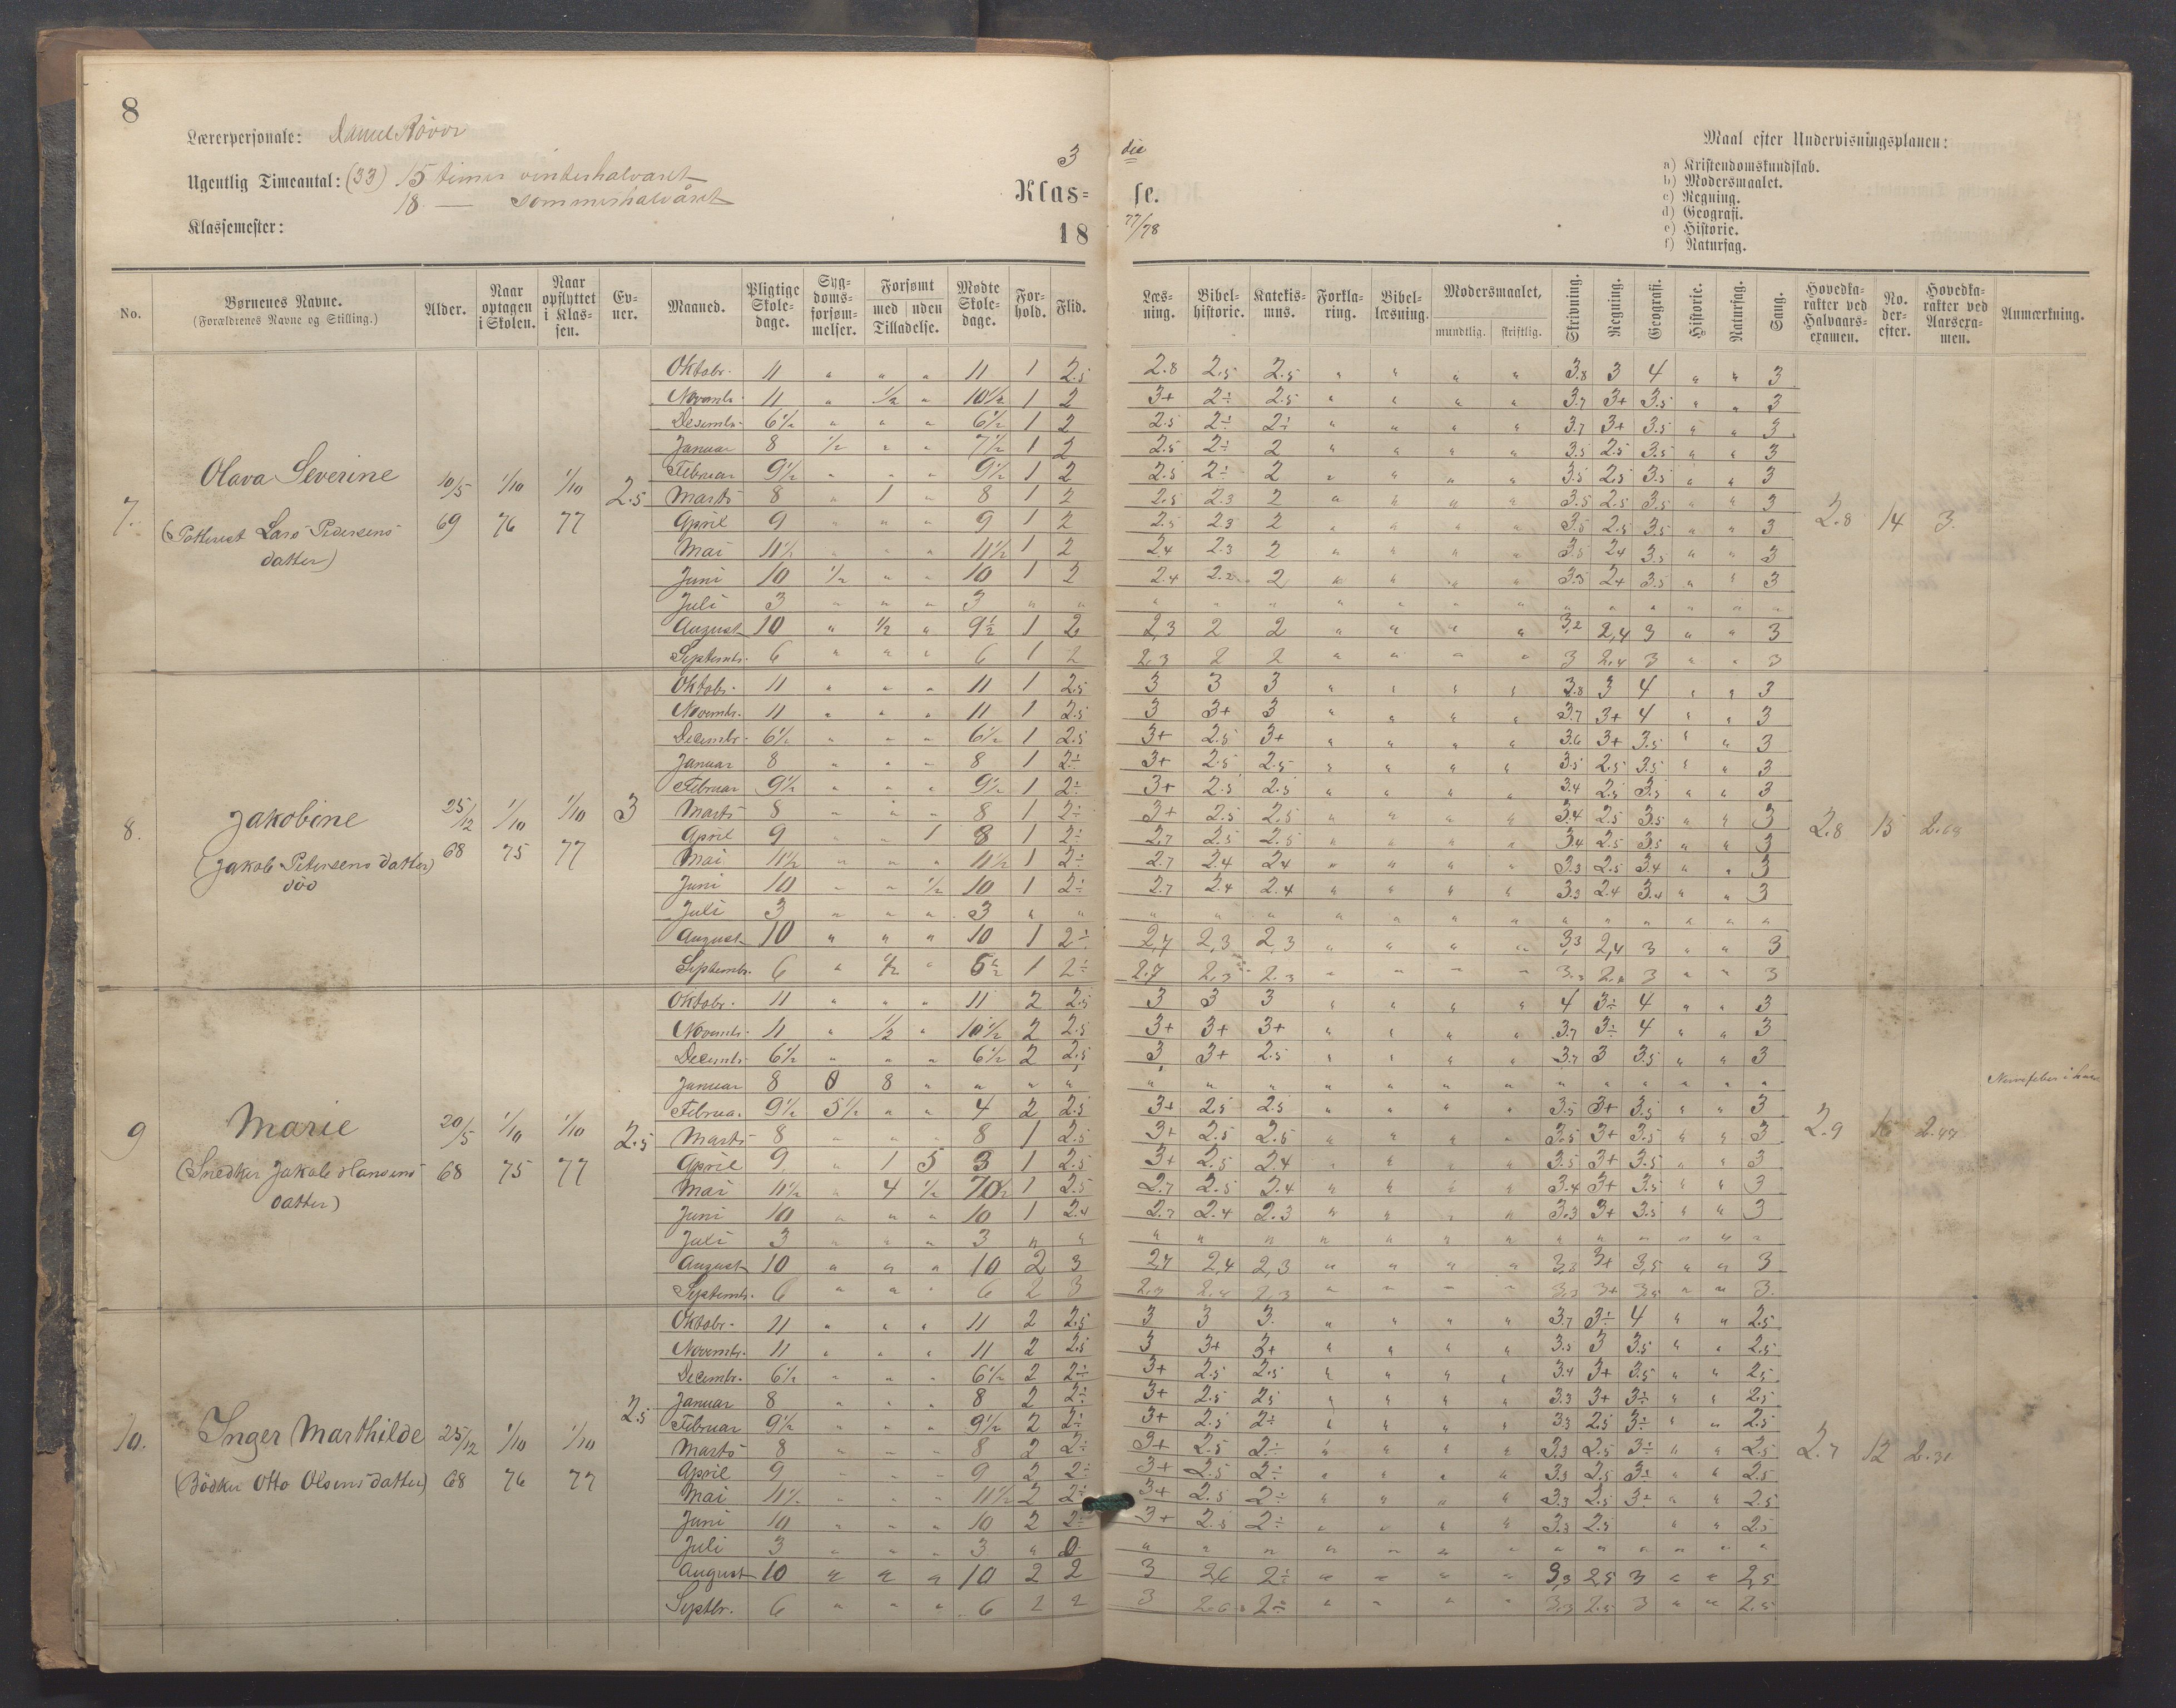 8
Lærerpersonale: Daniel
Ugentlig Timeantal: (33) 15 timer vinterhalvaret
18 — sommerhalvåret
Klassemester:
3 die
Klas= se.
18 77/78
Maal efter Undervisningsplanen:
a) Kristendomskundskab.
b) Modersmaalet.
c) Regning.
d) Geografi.
e) Historie.
f) Naturfag.
No. Børnenes Navne. (Forældrenes Navne og Stilling.) Alder. Naar optagen i Skolen. Naar opflyttet i Klassen. Evner. Maaned. Pligtige Skoledage. Sygdomsforsømmelser. Forsømt med uden Tilladelse. Mødte Skoledage. Forhold. Flid. Læsning. Bibelhistorie. Katekismus. Forklaring. Bibellæsning. Modersmaalet, mundtlig. skriftlig. Skrivning. Regning. Geografi. Historie. Naturfag. Sang. Hovedkarakter ved Halvaarsexamen. No. derefter. Hovedkarakter ved Aarsexamen. Anmærkning.
7. Olava Severine 10/5 69 1/10 76 1/10 77 2.5 2.8 14 3.
( Lars Pedersens datter)
Oktobr. 11 " " " 11 1 2.5 2.8 2.5 2.5 " " " " 3.8 3 4 " " 3
Novembr. 11 " 1/2 " 10 1/2 1 2 3+ 2÷ 2.5 " " " " 3.7 3+ 3.5 " " 3
Desembr. 6 1/2 " " " 6 1/2 1 2 2.5 2÷ 2÷ " " " " 3.7 3+ 3.5 " " 3
Januar 8 1/2 " " 7 1/2 1 2 2.5 2÷ 2 " " " " 3.5 2.5 3.5 " " 3
Februar 9 1/2 " " " 9 1/2 1 2 2.5 2÷ 2 " " " " 3.5 2.5 3.5 " " 3
Marts 8 " 1 " 8 1 2 2.5 2.3 2 " " " " 3.5 2.5 3.5 " " 3
April 9 " " " 9 1 2 2.5 2.3 2 " " " " 3.5 2.5 3.5 " " 3
Mai 11 1/2 " " " 11 1/2 1 2 2.4 2.3 2 " " " " 3.5 2.4 3.5 " " 3
Juni 10 1/2 " " 10 1 2 2.4 2.2 2 " " " " 3.5 2.4 3.5 " " 3
Juli 3 " " " 3 " " " " " " " " " " " " " " "
August 10 " 1/2 " 9 1/2 1 2 2,3 2 2 " " " " 3,2 2,4 3 " " 3
Septembr. 6 " " " 6 1 2 2,3 2 2 " " " " 3 2,4 3 " " 3
8. Jakobine 25/12 68 1/10 75 1/10 77 3 2.8 15
(Jakob Petersens datter)
död
Oktobr. 11 " " " 11 1 2.5 3 3 3 " " " " 3.8 3 4 " " 3
Novembr. 11 " " " 11 1 2.5 3 3+ 3 " " " " 3.7 3+ 4 " " 3
Decembr. 6 1/2 " " " 6 1/2 1 2.5 3+ 2.5 3+ " " " " 3.6 3+ 3.5 " " 3
Januar 8 " " " 8 1 2÷ 3+ 2.5 2.5 " " " " 3.5 2.5 3.5 " " 3
Februar 9 1/2 " " " 9 1/2 1 2÷ 3+ 2.5 2.5 " " " " 3.4 2.5 3.5 " " 3
Marts 8 " " " 8 1 2÷ 3+ 2.5 2.5 " " " " 3.4 2.5 3.5 " " 3
April 9 " " 1 8 1 2÷ 2.7 2.5 2.5 " " " " 3.4 2.5 3.5 " " 3
Mai 11 1/2 " " " 11 1/2 1 2÷ 2.7 2.4 2.4 " " " " 3.3 2.5 3.4 " " 3
Juni 10 " " 1/2 10 1 2÷ 2.7 2.4 2.4 " " " " 3.3 2.4 3.4 " " 3
Juli 3 " " " 3 " " " " " " " " " " " " " " "
August 10 " " " 10 1 2÷ 2,7 2,3 2,3 " " " " 3,3 2,4 3 " " 3
Septembr. 6 " 1/2 " 5 1/2 1 2÷ 2.7 2,3 2.3 " " " " 3.3 2.4 3 " " 3
9 Marie 20/5 68 1/10 75 1/10 77 2.5 2.9
(Snedker Jakob Hansens datter)
Oktobr. 11 " " " 11 2 2.5 3 3 3 " " " " 4 3÷ 4 " " 3
Novembr. 11 " 1/2 " 10 1/2 2 2.5 3+ 3+ 3+ " " " " 3.7 3÷ 4 " " 3
Decembr. 6 1/2 " " " 6 1/2 2 2.5 3 3+ 2.5 " " " " 3.7 3 3.5 " " 3
Januar 8 0 8 " " " " " " " " " " " " " " " " " Nervefeber i
Februar 9 1/2 5 1/2 " " 4 2 2.5 3+ 2.5 2.5 " " " " 3.5 3+ 3.5 " " 3
Marts 8 " " " 8 1 2.5 3+ 2.5 2.5 " " " " 3.5 3+ 3.5 " " 3
April 9 " 1 5 3 1 2.5 3+ 2.5 2.4 " " " " 3.5 3+ 3.5 " " 3
Mai 11 1/2 " 4 1/2 1 2.5 2.7 2.5 2.4 " " " " 3.4 3+ 3.5 " " 3
Juni 10 " " " 10 1 2.4 2.7 2.4 2.3 " " " " 3.3 3+ 3.5 " " 3
Juli 3 " " " 3 " " " " " " " " " " " " " " "
August 10 " " " 10 2 3 2,7 2,4 2,3 " " " " 3,3 3+ 3,5 " " 3
Septembr. 6 " " " 6 2 3 2,3 " " " " 3,3 3+ " " 3.
10. Inger Marthilde 25/12 68 1/10 76 1/10 77 2.5 2.7 12
(Bödker Otto Olsens datter)
Oktobr. 11 " " " 11 2 2.5 3 3 3. " " " " 3.7 3÷ 4 " " 2.5
Novembr. 11 " " " 11 2 2.5 3 3+ 3+ " " " " 3.5 3 3.5 " " 2.5
Decembr. 6 1/2 " " " 6 1/2 2 2÷ 3+ 2.5 2.5 " " " " 3.4 3+ 3.5 " " 2.5
Januar 8 " " " 8 2 2÷ 3+ 2.5 2.5 " " " " 3.3 3+ 3÷ " " 2.5
Februar 9 1/2 " " " 9 1/2 2 2÷ 3+ 2.5 2÷ " " " " 3.3 2.5 3÷ " " 2.5
Marts 8 " " " 8 2 2÷ 3+ 2.5 2÷ " " " " 3.3 2.5 3÷ " " 2.5
April 9 " " " 9 2 2÷ 3+ 2.5 2÷ " " " " 3.3 2.5 3÷ " " 2.5
Mai 11 1/2 " " " 11 1/2 2 2÷ 3+ 2.5 2÷ " " " " 3.3 2.5 3÷ " " 2.5
Juni 10 " " " 10 2 2÷ 3+ 2.5 2÷ " " " " 3.3 2.5 " " 2.5
Juli 3 " " " 3 " 0 " " " " " " " " " " " " "
August 10 " " " 10 2 2 3 2,6 2÷ " " " " 3,3 2,5 3 " " 2,5
Septbr. 6 " " " 6 2 2 3 2.6 2÷ " " " " 3.3 2.5 3 " " 2.5